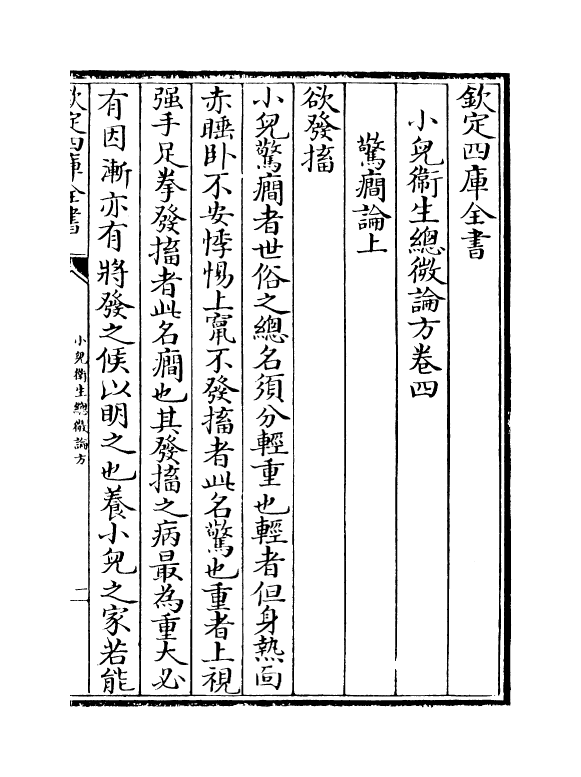 欽定四庫全書
小兒衛生總微論方卷四
驚癇論上
欲發搐
小兒驚癇者世俗之總名須分輕重也輕者但身熱面
赤睡卧不安悸惕上竄不發搐者此名驚也重者上視
强手足拳發搐者此名癇也其發搐之病最為重大必
有因漸亦有將發之候以明之也養小兒之家若能
欽定四庫全書
小兒衛生總微論方
二